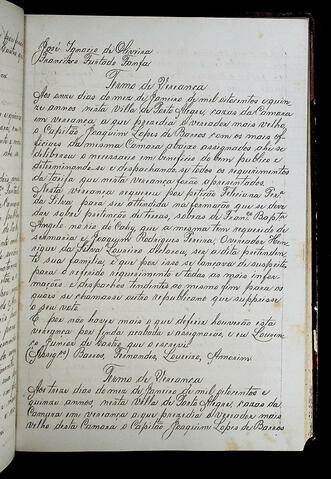 José Ignacio de Oliveira
Francisco Furtado Fanfa
Termo de Vereança
Aos onze dias do mez de Janeiro de mil oitocentos e quin-
ze annos, nesta villa de Porto Alegre, cazas da Camara
em vereança a que prezidio o vereador mais velho
o Capitão Joaquim Lopes de Barros com os mais of-
ficiaes da mesma Camara abaixo assignados ahi se
deliberou o necessario em beneficio do bem publico e
determinando-se e despachando-se todos os requerimentos
da tarifa que nesta vereança forão apresentados.
Nesta vereança requereu por petição Feliciana Frco.
da Silva para ser attendida na formação que se deve
dar sobre pretenção de terras, sobras de Franco. Bapta.
Angelo no rio do Cahy, que a mesma tem requerido de
sesmaria e Joaquim Rodrigues Pereira, O vereador Hen-
rique da Loureiro ser a dita pretenden-
te sua familia, e que por isso se lançava de suspeito
para o referido requerimento e todas as mais infor-
mações e despachos tendentes ao mesmo fim para os
quaes se chamasse outro republicano que supprisse
o seu voto.
E por não haver mais o que deferir houverão esta
vereança por finda acabada e assignarão, e eu Louren-
ço Junior de Castro que o escrevi.
(Assigos.) Barros, Fernandes, Loureiro, Amorim
Termo de Vereança
Aos treze dias do mez de Janeiro de mil oitocentos e
quinze annos, nesta Villa de Porto Alegre, cazas da
Camara em vereança a que prezidio o Vereador mais
velho desta Camara o Capitão Joaquim Lopes de Barros